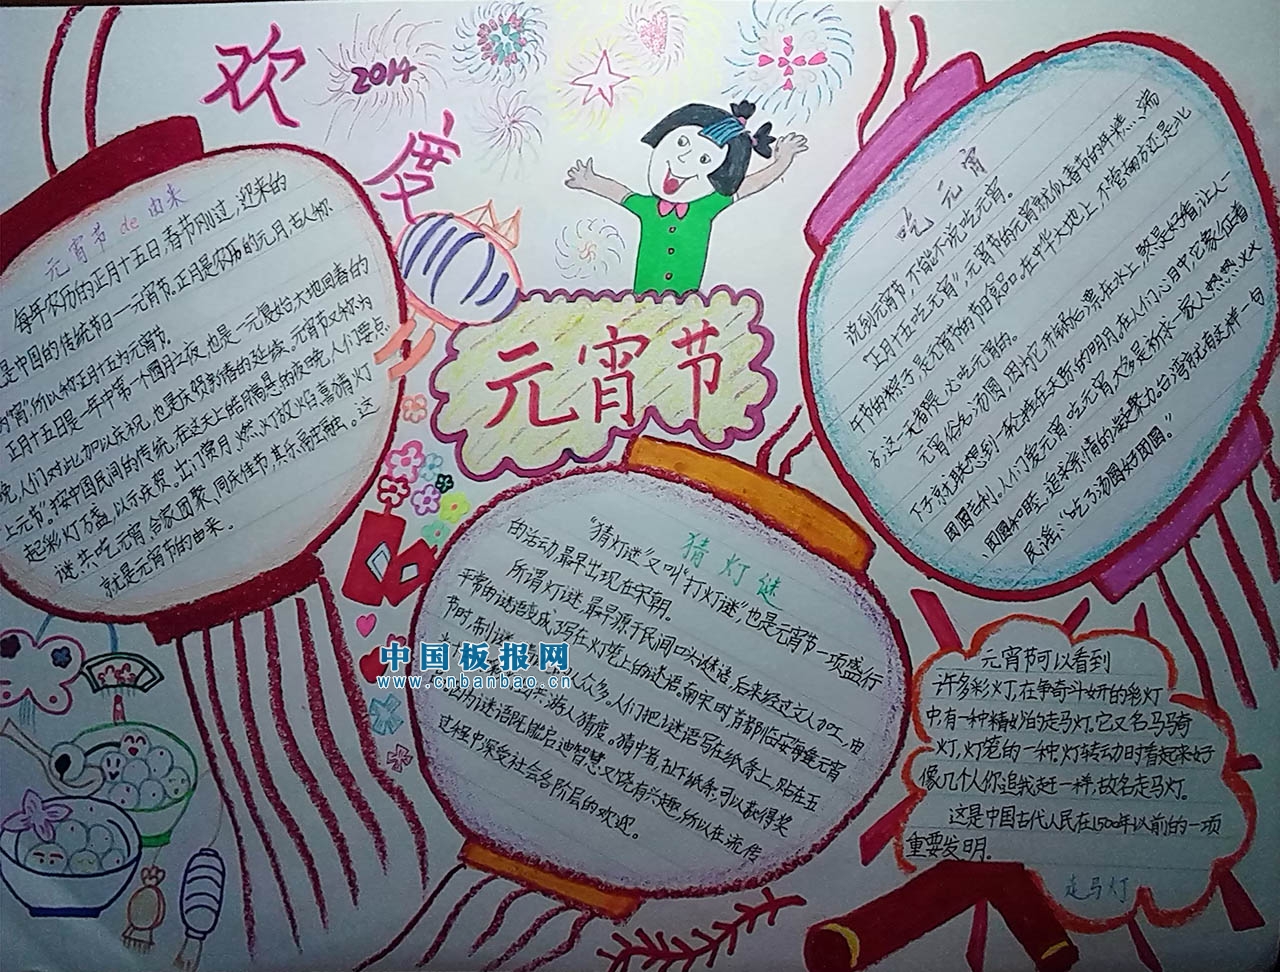 欢
2014
度
元宵节
元宵节de由来
每年农历的正月十五日,春节刚过,迎来的
是中国的传统节日—元宵节.正月是农历的元月,古人称
为"宵",所以称正月十五为元宵节.
正月十五日是一年中第一个圆月之夜,也是一元复始,大地回春的
晚,人们对此加以庆祝,也是庆贺新春的延续。元宵节又称为
上元节".按中国民间的传统,在这天上皓月高悬的夜晚,人们要点
起彩灯万盏,以示庆贺。出门赏月、燃灯放火焰、喜猜灯
谜、共吃元宵、合家团聚、同庆佳节,其乐融融。这
就是元宵节的由来.
吃元宵
说到元宵节,不能不说吃元宵。
"正月十五吃元宵",元宵节的元宵就似春节的年糕、端
午节的粽子,是元宵节的节日食品.在中华大地上,不管南方还是北
方,这一天都是必吃元宵的.
元宵俗名:汤圆,因为它开锅后漂在水上,煞是好看,让人一
下子就联想到一轮挂在天际的明月.在人们心目中,它象征着
团团吉利。人们爱元宵,吃元宵,大多是祈求一家人热热火火
、团圆和旺.追求亲情的凝聚力.台湾就有这样一句
民谣:"吃了汤圆好团圆."
猜灯谜
"猜灯谜"又叫"打灯谜",也是元宵节一项盛行
的活动,最早出现在宋朝.
所谓灯谜,最早源于民间口头谜语,后来经过文人加工,由
平常的谜语变成了写在灯笼上的谜语.南宋时,首都临安每逢元宵
节时,制谜
人众多。人们把谜语写在纸条上,贴在五
游人猜度。猜中者,扯下纸条,可以获得奖
因为谜语既能启迪智慧又饶有兴趣,所以在流传
过程中深受社会各阶层的欢迎.
中国板报网
www.cnbanbao.cn
元宵节可以看到
许多彩灯,在争奇斗妍的彩灯
中有一种精妙的走马灯.它又名马骑
灯,灯笼的一种.灯转动时看起来好
像几个人你追我赶一样,故名走马灯.
这是中国古代人民在1500年以前的一项
重要发明.
走马灯